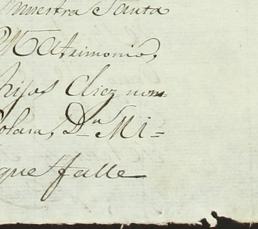 nuestra Santa
Matrimonio,
hijos Diez nom
olam, Dn Mi=
que falle